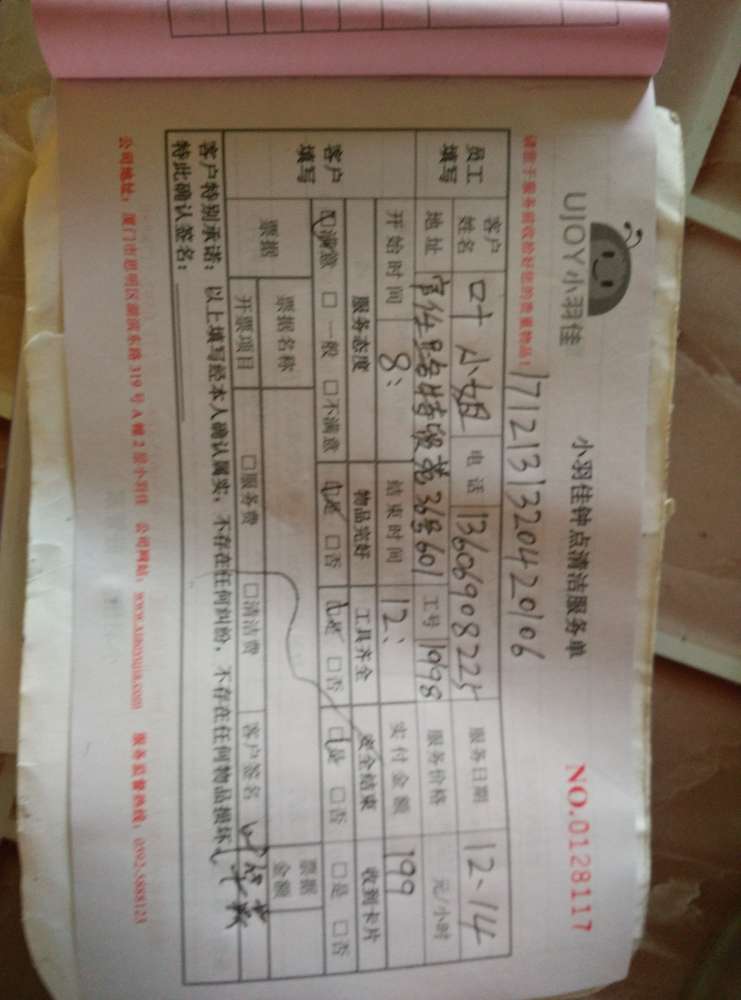 UJOY小羽佳
小羽佳钟点清洁服务单
NO.0128117
请您于服务前收拾好您的贵重物品！
1712131320420106
员工填写 客户姓名 叶小姐 电话 13606908225 服务日期 12、14
地址 36号601 工号 1998 服务价格 元/小时
开始时间 8： 结束时间 12： 实付金额 199
客户填写 服务态度 物品完好 工具齐全 安全结束 收到卡片
☑满意 □一般 □不满意 ☑是 □否 ☑是 □否 ☑是 □否 □是 □否
票据 票据名称 票据金额
开票项目 □服务费 □清洁费 客户签名
客户特别承诺：以上填写经本人确认属实，不存在任何纠纷，不存在任何物品损坏，
特此确认签名：
公司地址：厦门市思明区湖滨东路319号A幢2层小羽佳 公司网站：www.xiaoyujia.com 服务监督热线：0592-5888123